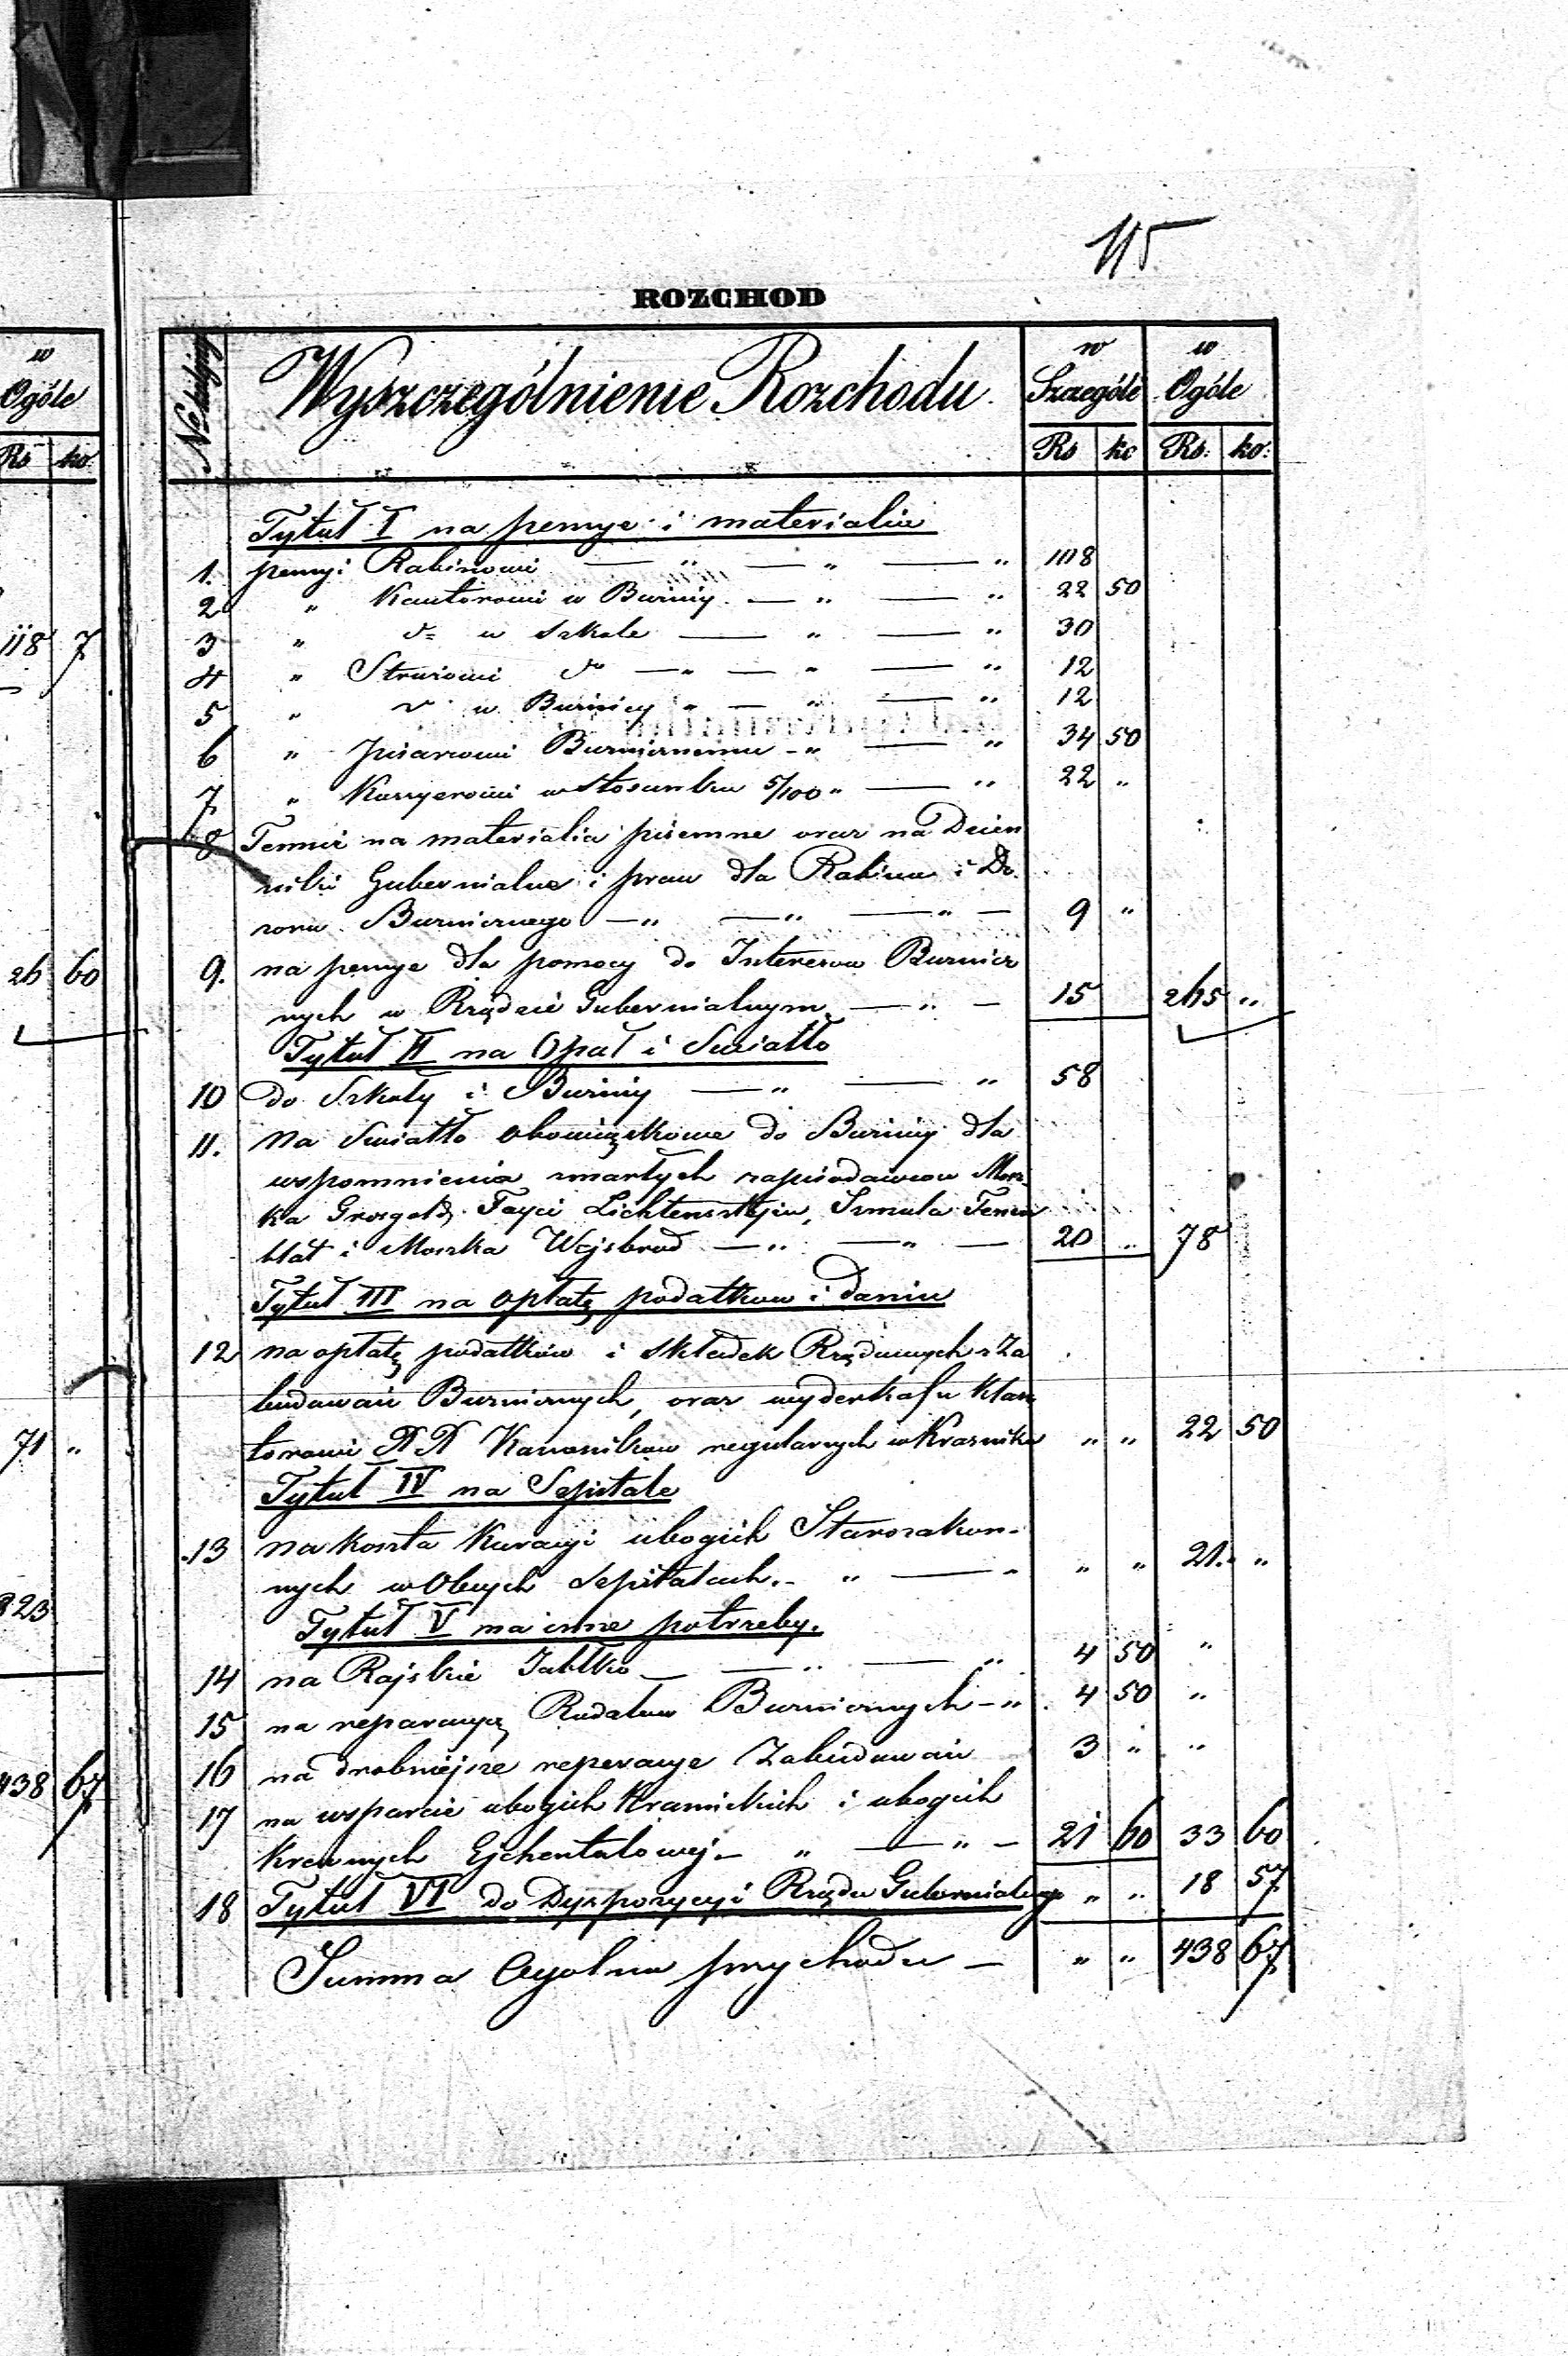 115
ROZCHOD
w Ogóle
Rs ko:
No bieżący
Wyszczególnienie Rozchodu
w Szczególe
w Ogóle
Rs ko
Rs: ko:
Tytuł I na pensye i materialia
1. pensyi Rabinowi — " — " — " 108
2 " Kantorowi w Bużnicy — " — " 22 50
3 " do w szkole — " — " 30
4 " Stróżowi do — " — " — " 12
5 " do w Bużnicy " — " — " 12
6 " pisarzowi Bużnicznemu — " — " 34 50
7 " Kassyerowi w stosunku 5/100 " — " 22 "
8 Temuż na materialia piśmienne oraz na Dzien
niki Gubernialne i praw dla Rabina i Do
zoru Bużnicznego — " — " — " — 9 "
9. na pensye dla pomocy do Interesow Bużnicz
nych w Rządzie Gubernialnym — " — 15 265 "
Tytuł II na Opał i Swiatło
10 do Szkoły i Bużnicy — " — " 58
11. Na Swiatło obowiązkowe do Bużnicy dla
wspomnienia zmarłych zapisodawcow Mosz
ka Grosgold, Fayci Lichtensztejn, Szmula Tenen
blat i Moszka Wajsbrod — " — " — 20 " 78
Tytuł III na opłatę podatkow i danin
12 na opłatę podatków i składek Rządowych z Za
budowań Bużnicznych, oraz wyderkafu Klasz
torowi XX Kanonikow regularnych w Krasniku " " 22 50
Tytuł IV na Szpitale
13 na koszta Kuracyi ubogich Starozakon-
nych w Obcych szpitalach. — " — " " " 21. "
Tytuł V na inne potrzeby.
14 na Rajskie Jabłko — — " — " 4 50 "
15 na reparacyą Rodałow Bużnicznych — " 4 50 "
16 na drobniejsze reperacye Zabudowań 3 " "
17 na wsparcie ubogich Krasnickich i ubogich
Krewnych Ejchentalowej — " — " — 21 60 33 60
18 Tytuł VI do Dyspozycyi Rządu Gubernialnego " " 18 57
Summa Ogolna przychodu — " " 438 67
118 7
26 60
71 "
823
438 67